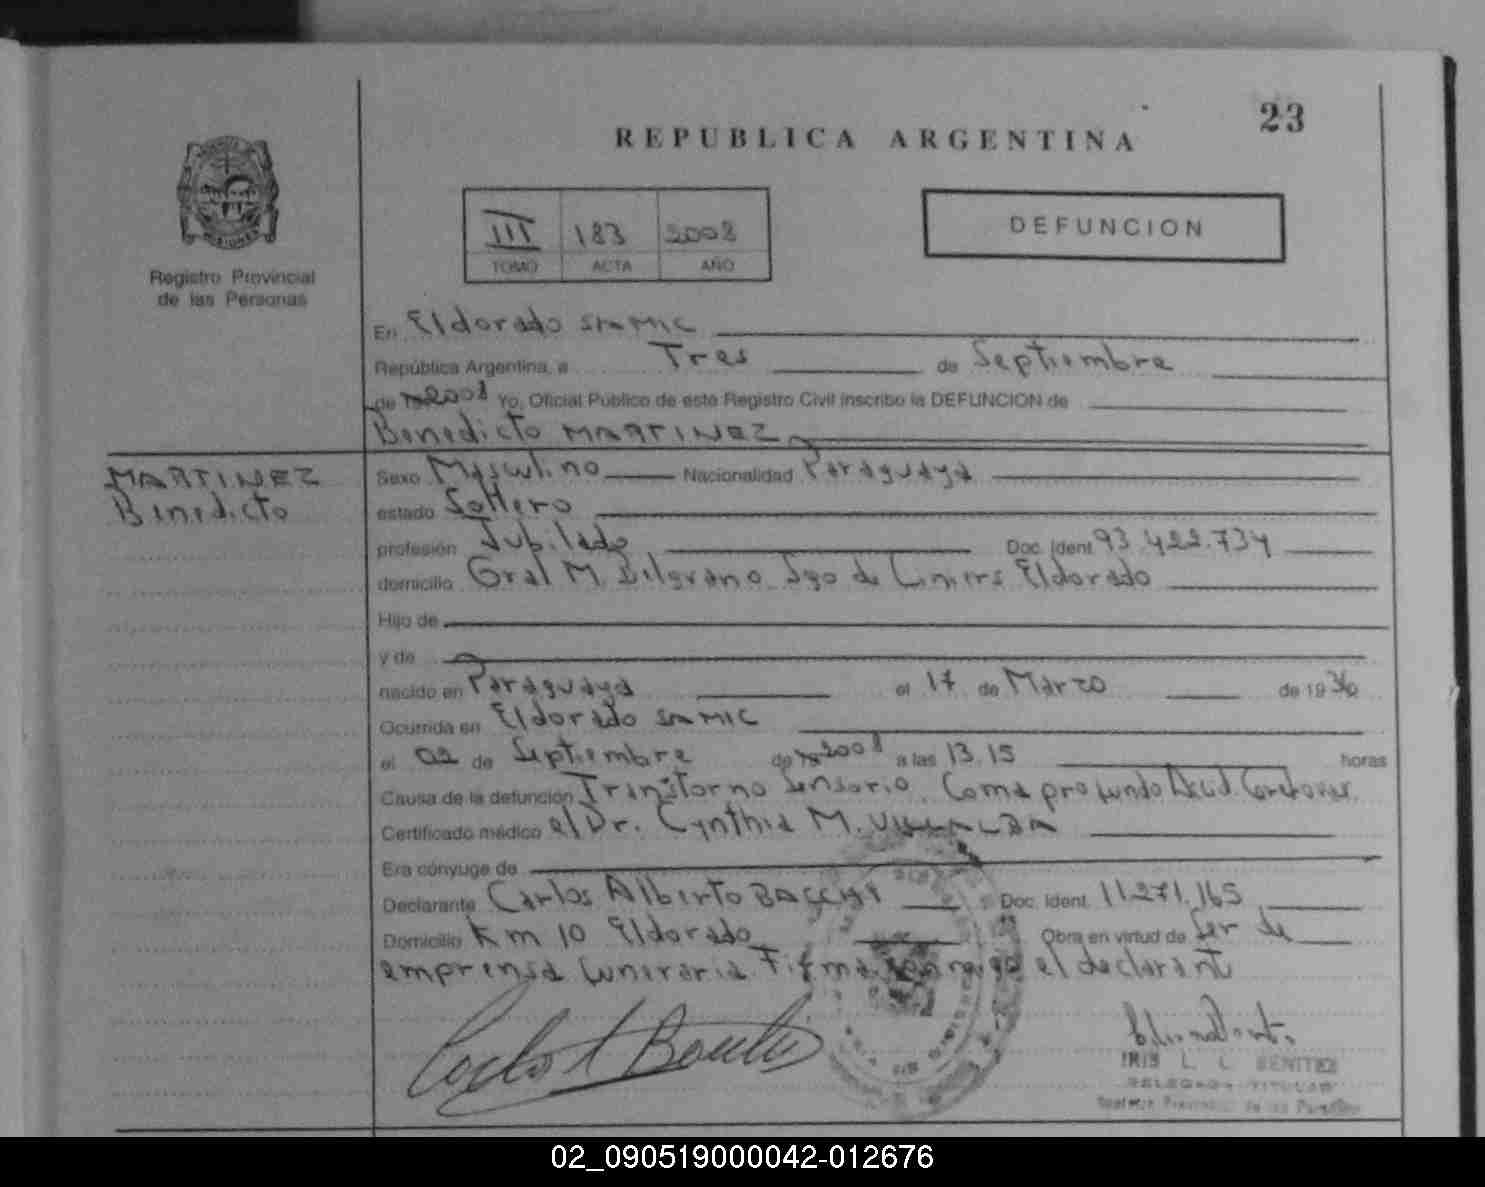 23
REPUBLICA ARGENTINA
III 183 2008
TOMO ACTA AÑO
DEFUNCION
MISIONES
Registro Provincial
de las Personas
En Eldorado SAMIC
República Argentina, a Tres de Septiembre
de 19 2008 Yo, Oficial Público de este Registro Civil inscribo la DEFUNCION de
Benedicto MARTINEZ
MARTINEZ
Benedicto
Sexo Masculino Nacionalidad Paraguaya
estado Soltero
profesión Jubilado Doc. Ident. 93.422.734
domicilio Gral M. Belgrano Sgo de Liniers Eldorado
Hijo de
y de
nacido en Paraguaya el 17 de Marzo de 1936
Ocurrida en Eldorado SAMIC
el 02 de Septiembre de 19 2008 a las 13.15 horas
Causa de la defunción Transtorno Sensorio. Coma profundo
Certificado médico el Dr. Cynthia M. VILLALBA
Era cónyuge de
Declarante Carlos Alberto Doc. Ident. 11.271.165
Domicilio Km 10 Eldorado Obra en virtud de Ser de
emprensa funeraria Firma conmigo el declarante
IRIS L. L. BENITEZ
DELEGADA TITULAR
Registro Provincial de las Personas
02_090519000042-012676